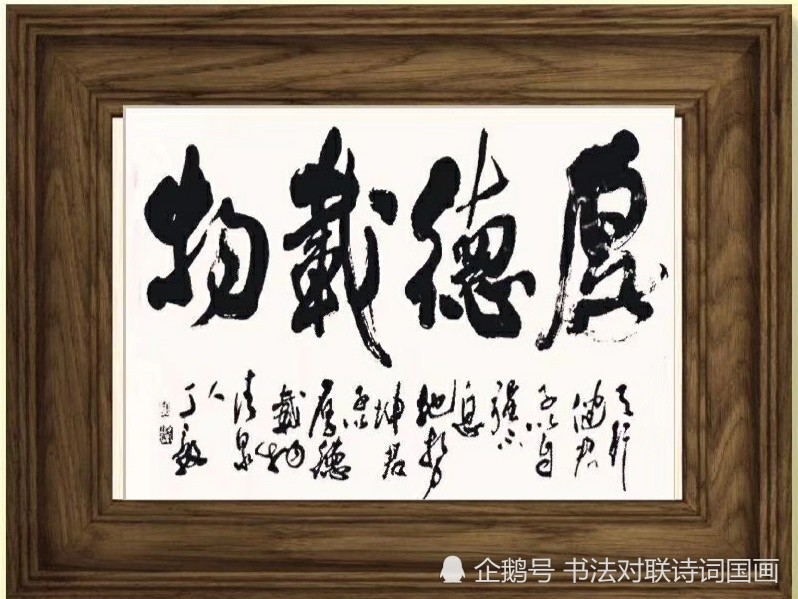 厚德載物
天行
健君
子以自
強不
息
地势
坤君
子以
厚德
載物
清泉
人
丁敏
企鹅号 书法对联诗词国画